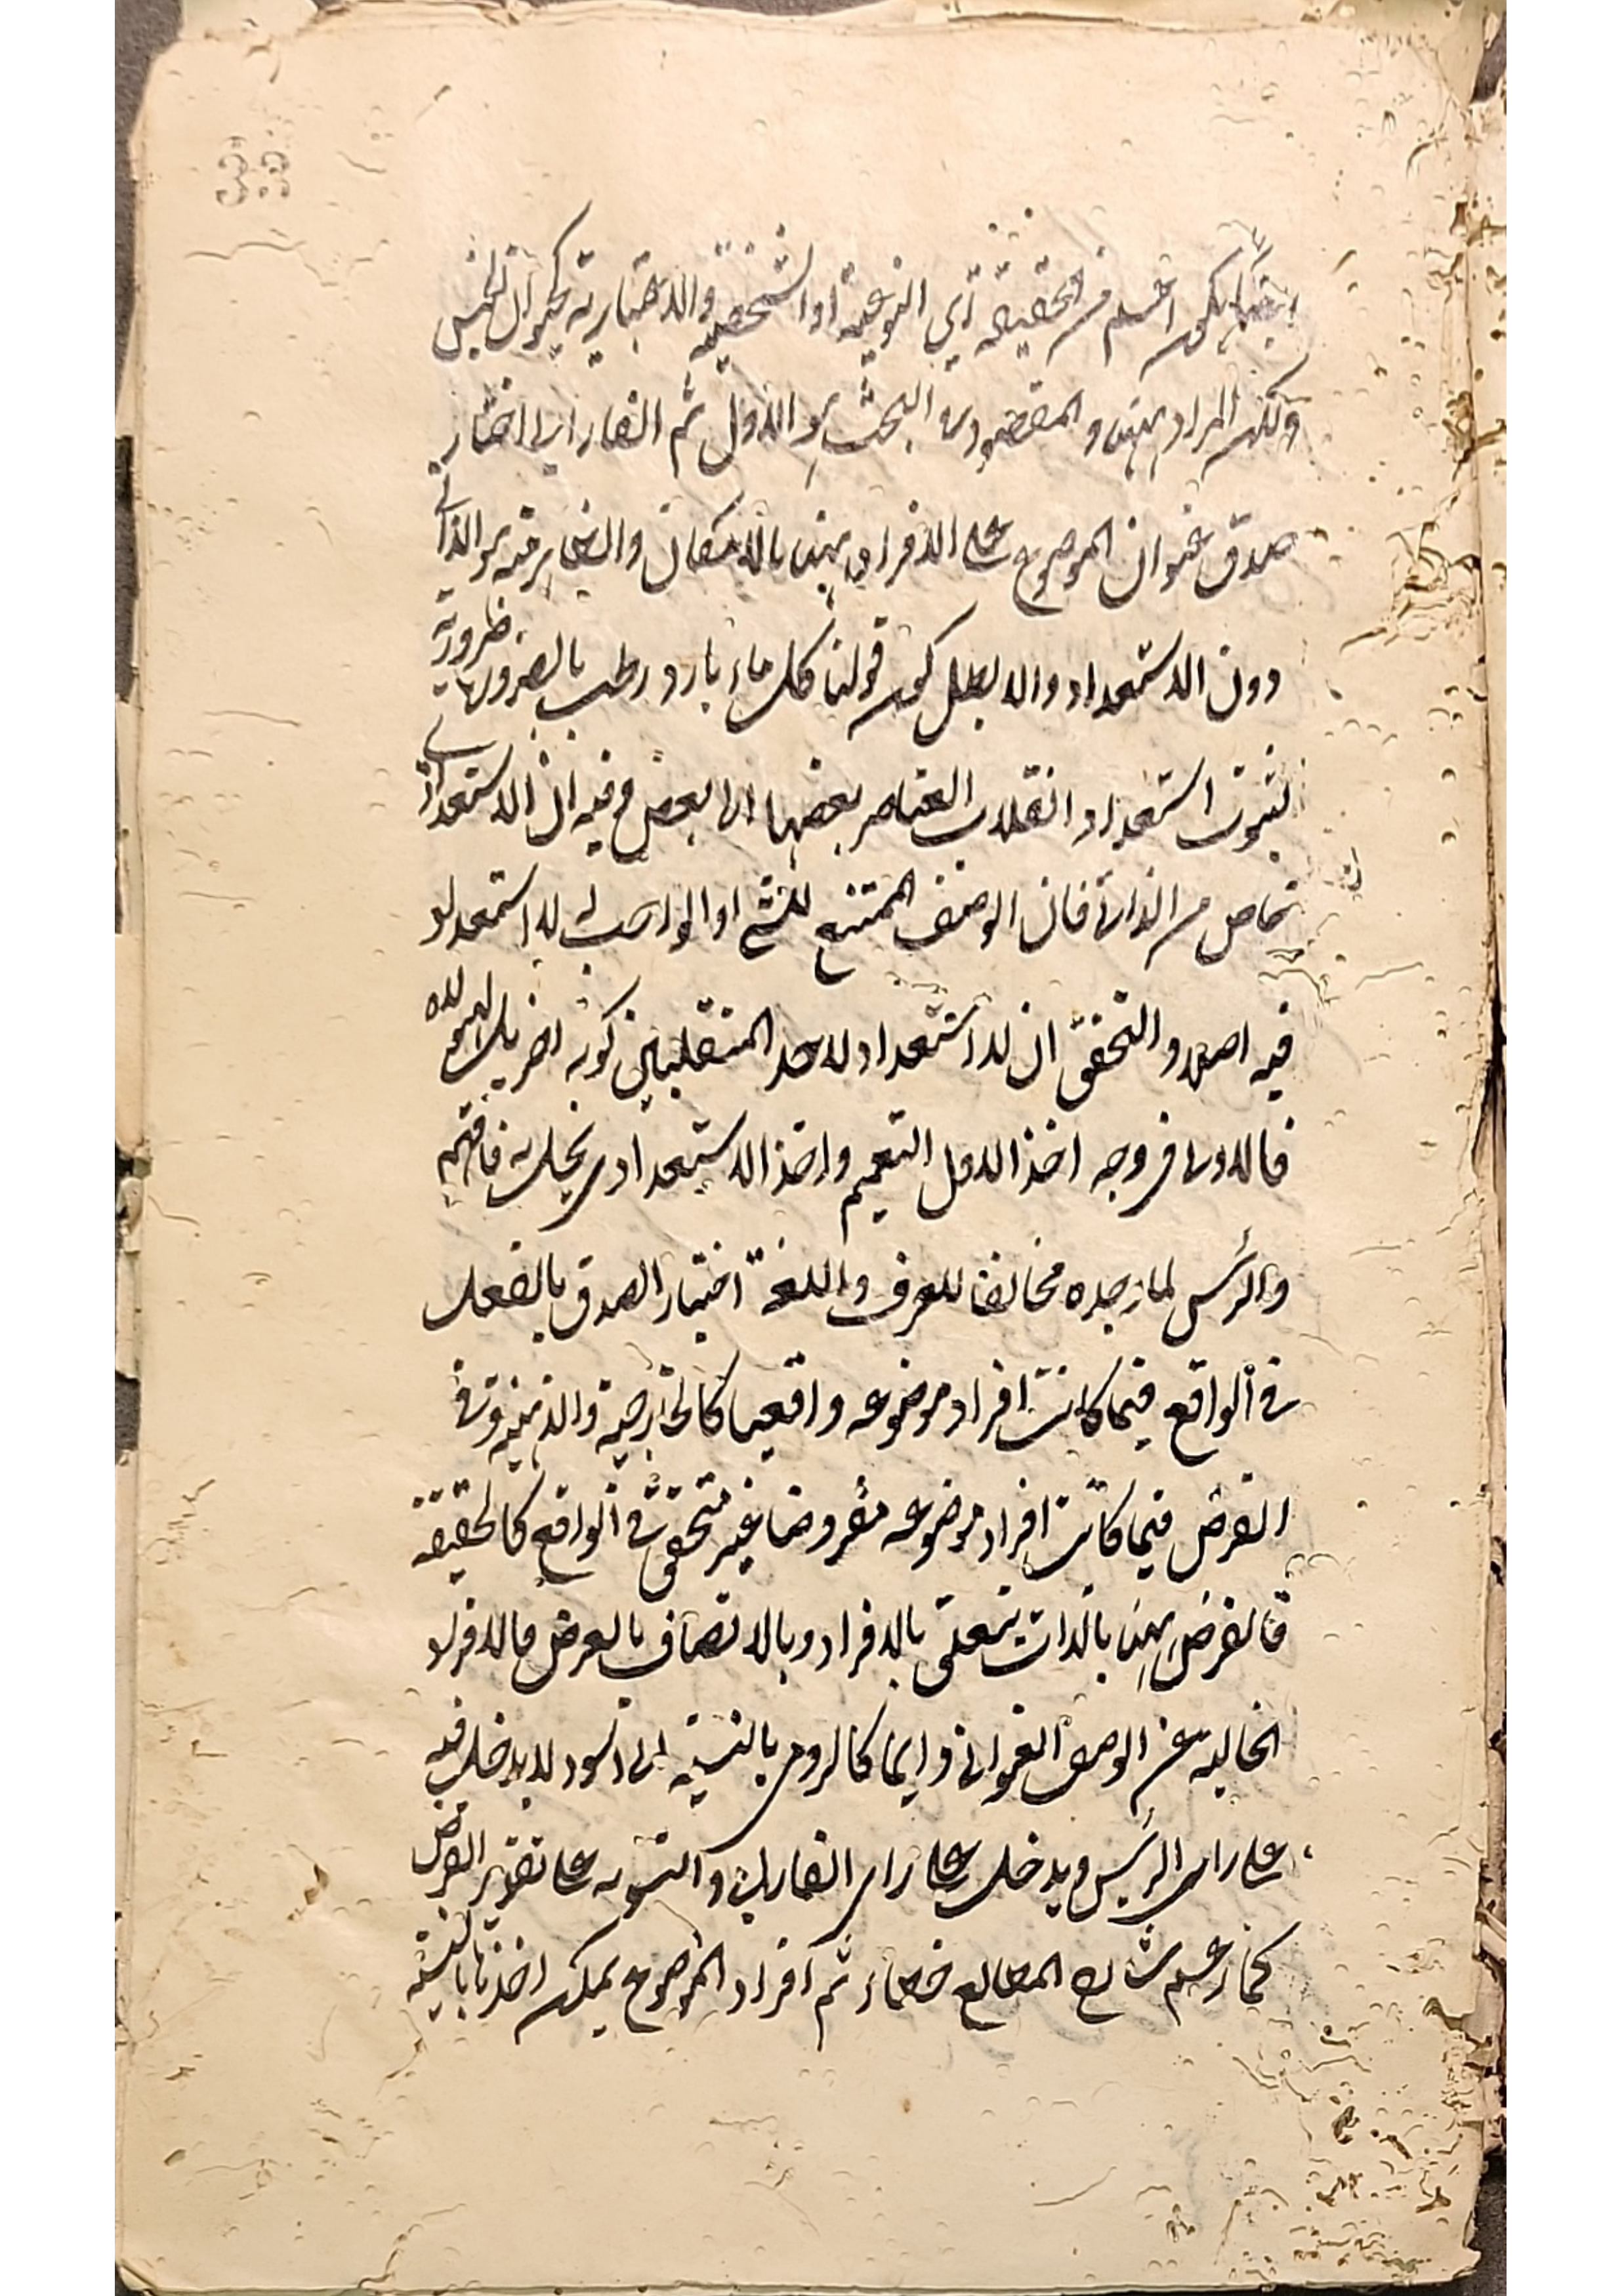 فيكون اعم من الحقيقة اي النوعية او الشخصية والاعتبارية كحيوان الجنس
ولكن المراد ههنا والمقصود في البحث هو الاول ثم الفارابي اختار
صدق عنوان الموضوع على الافراد ههنا بالامكان والمعتبر فيه هو الذاتي
دون الاستعداد والا بطل كون قولنا كل ماء بارد رطب بالضرورة ضرورية
لثبوت استعداد انقلاب العناصر بعضها الى بعض وفيه ان الاستعدادي
خاص من الذاتي فان الوصف الممتنع للشئ او الواجب له لا استعداد له
فيه اصلا والتحقق ان لا استعداد لاحد المنقلبين كونه اخر بل للهيولى
فالاولى في وجه اخذ الاول التعميم واخذ الاستعدادي يخل به فافهم
والرئيس لما وجده مخالفا للعرف واللغة اختار الصدق بالفعل
في الواقع فيما كانت افراد موضوعه واقعيا كالخارجية والذهنية وفي
الفرض فيما كانت افراد موضوعه مفروضا غير متحقق في الواقع كالحقيقة
فالفرض ههنا بالذات يتعلق بالافراد وبالاتصاف بالعرض فالافراد
الخالية عن الوصف العنواني دائما كالرومي بالنسبة الى الاسود لا يدخل فيه
على راى الرئيس ويدخل على راى الفارابي والتسوية على تقدير الفرض
كما زعم شارح المطالع خطاء ثم افراد الموضوع يمكن اخذها بالنسبة